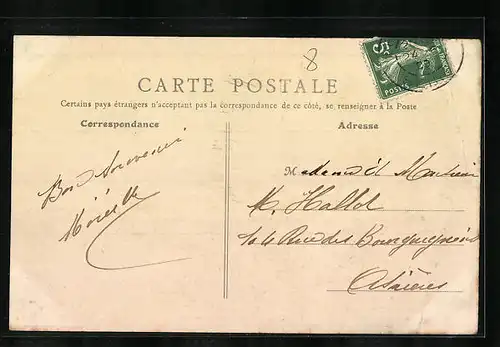 8
5c
POSTES
CARTE POSTALE
Certains pays étrangers n'acceptant pas la correspondance de ce côté, se renseigner à la Poste
Correspondance
Adresse
Bon Souvenir
Mademoiselle et Monsieur
M. Hallot
104 Rue des Bourguignons
Asnières